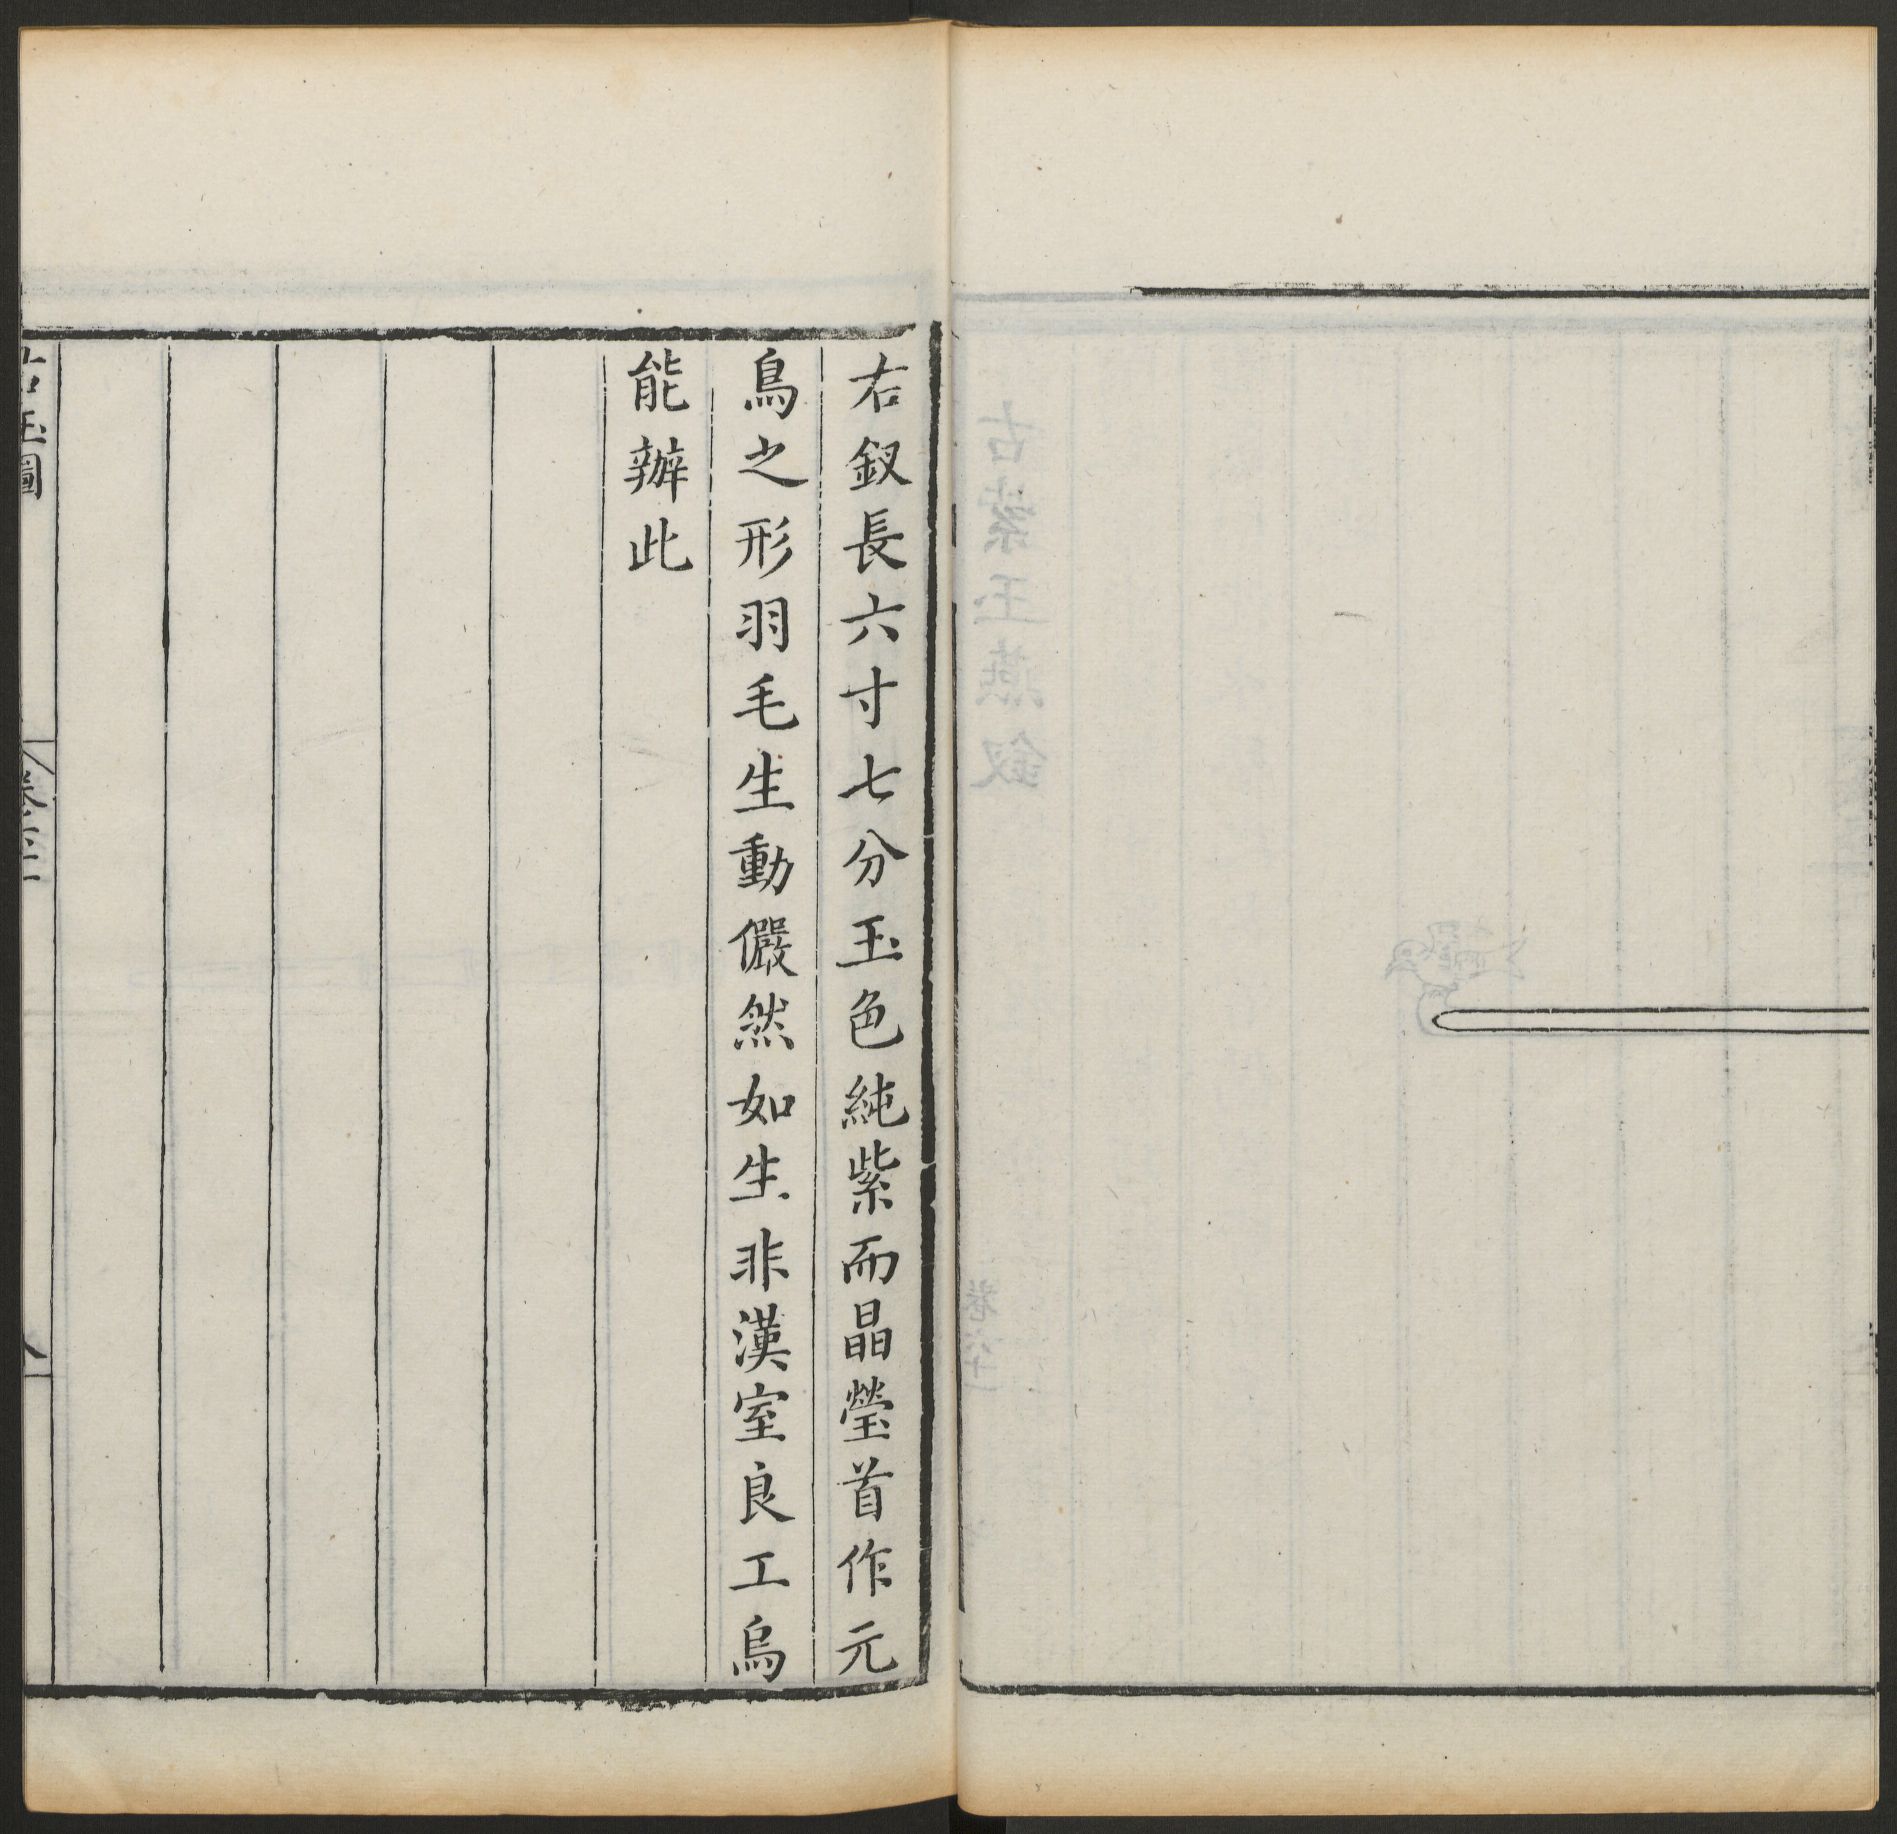 右釵長六寸七分玉色純紫而晶瑩首作元
鳥之形羽毛生動儼然如生非漢室良工烏
能辦此
古玉圖